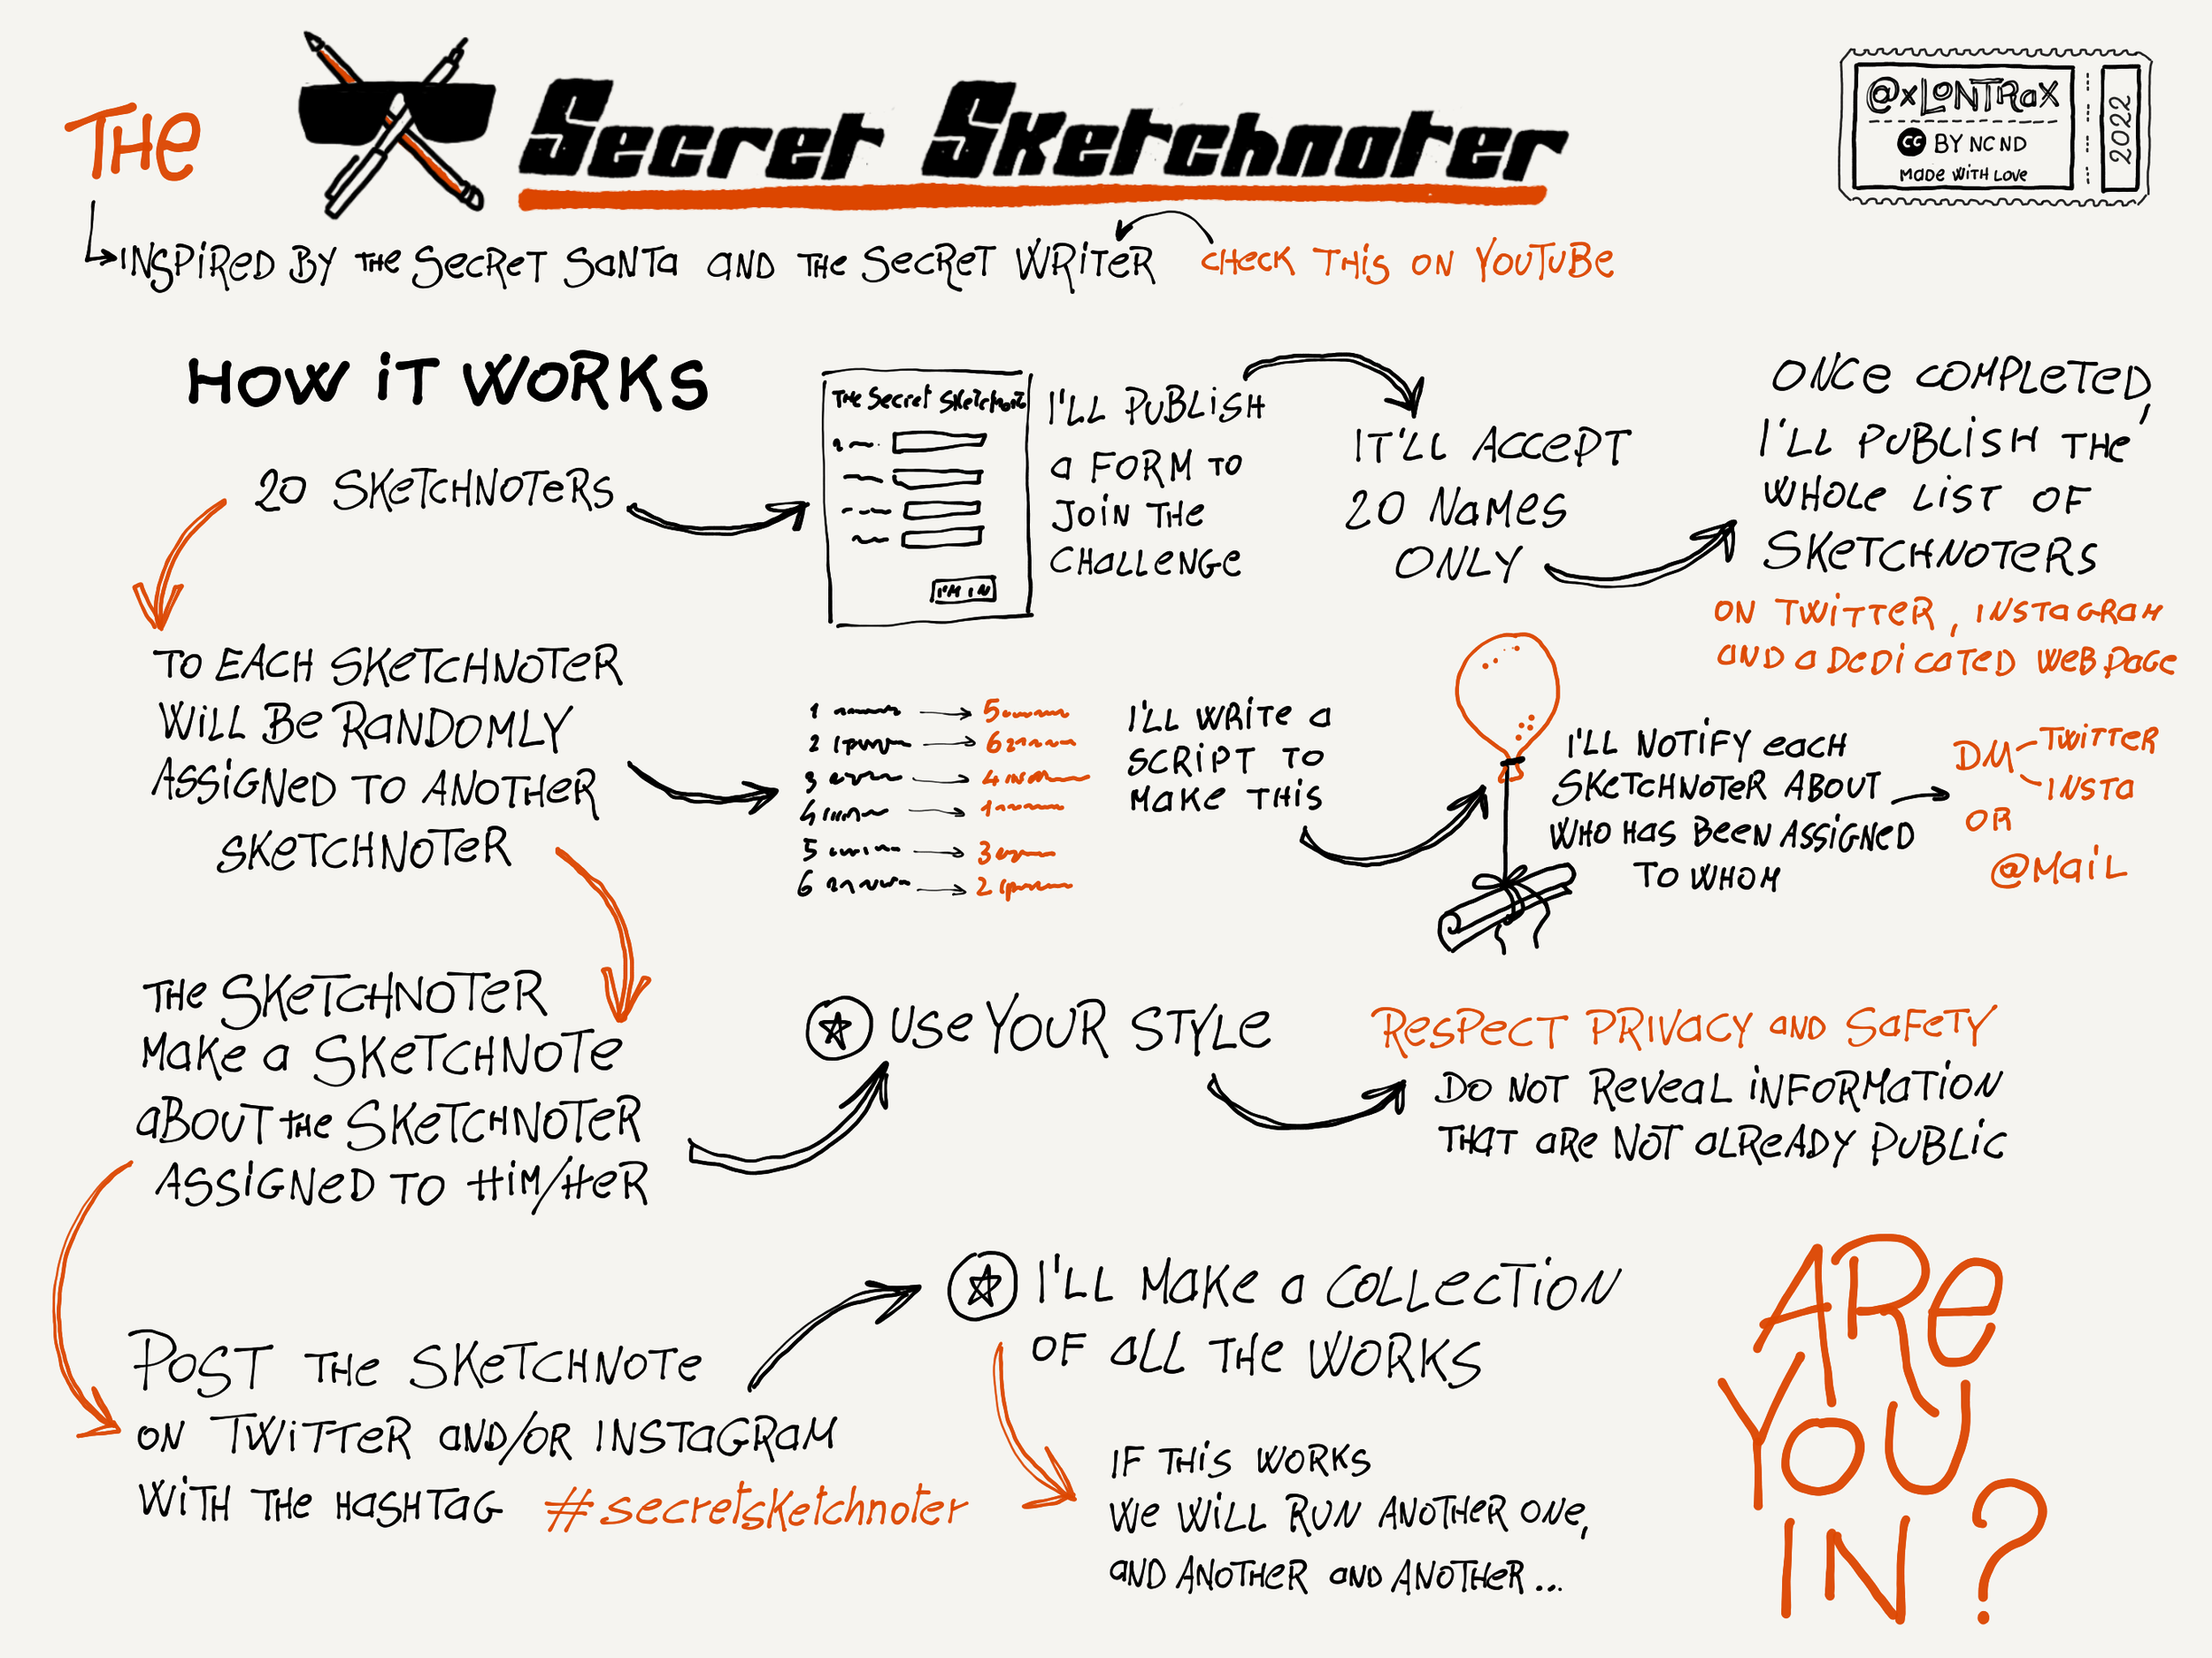 THE Secret Sketchnoter
@xLONTRax
cc BY NC ND
MADE WITH LOVE
2022
INSPIRED BY THE SECRET SANTA AND THE SECRET WRITER
CHECK THIS ON YOUTUBE
HOW IT WORKS
20 SKETCHNOTERS
THE Secret SKetchnote
I'M IN
I'LL PUBLISH
A FORM TO
JOIN THE
CHALLENGE
IT'LL ACCEPT
20 NAMES
ONLY
ONCE COMPLETED,
I'LL PUBLISH THE
WHOLE LIST OF
SKETCHNOTERS
ON TWITTER, INSTAGRAM
AND A DEDICATED WEB PAGE
TO EACH SKETCHNOTER
WILL BE RANDOMLY
ASSIGNED TO ANOTHER
SKETCHNOTER
1 5
2 6
3 4
4 1
5 3
6 2
I'LL WRITE A
SCRIPT TO
MAKE THIS
I'LL NOTIFY EACH
SKETCHNOTER ABOUT
WHO HAS BEEN ASSIGNED
TO WHOM
DM TWITTER
INSTA
OR
@MAIL
THE SKETCHNOTER
MAKE A SKETCHNOTE
ABOUT THE SKETCHNOTER
ASSIGNED TO HIM/HER
USE YOUR STYLE
RESPECT PRIVACY AND SAFETY
DO NOT REVEAL INFORMATION
THAT ARE NOT ALREADY PUBLIC
POST THE SKETCHNOTE
ON TWITTER AND/OR INSTAGRAM
WITH THE HASHTAG #secretsketchnoter
I'LL MAKE A COLLECTION
OF ALL THE WORKS
IF THIS WORKS
WE WILL RUN ANOTHER ONE,
AND ANOTHER AND ANOTHER...
ARE
YOU
IN?